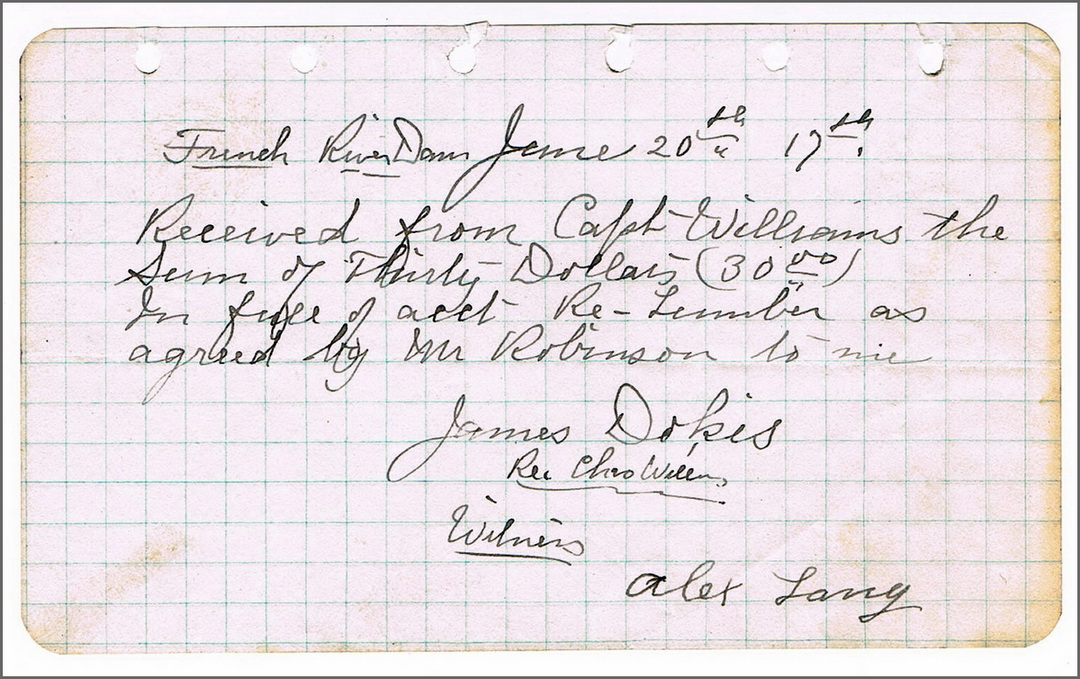 French River Dam June 20th 17th
Received from Capt Williams the
Sum of Thirty Dollars (30 00)
In full of acct Re-Lumber as
agreed by Mr Robinson to me
James Dokis
Chas
Witness
Alex Lang